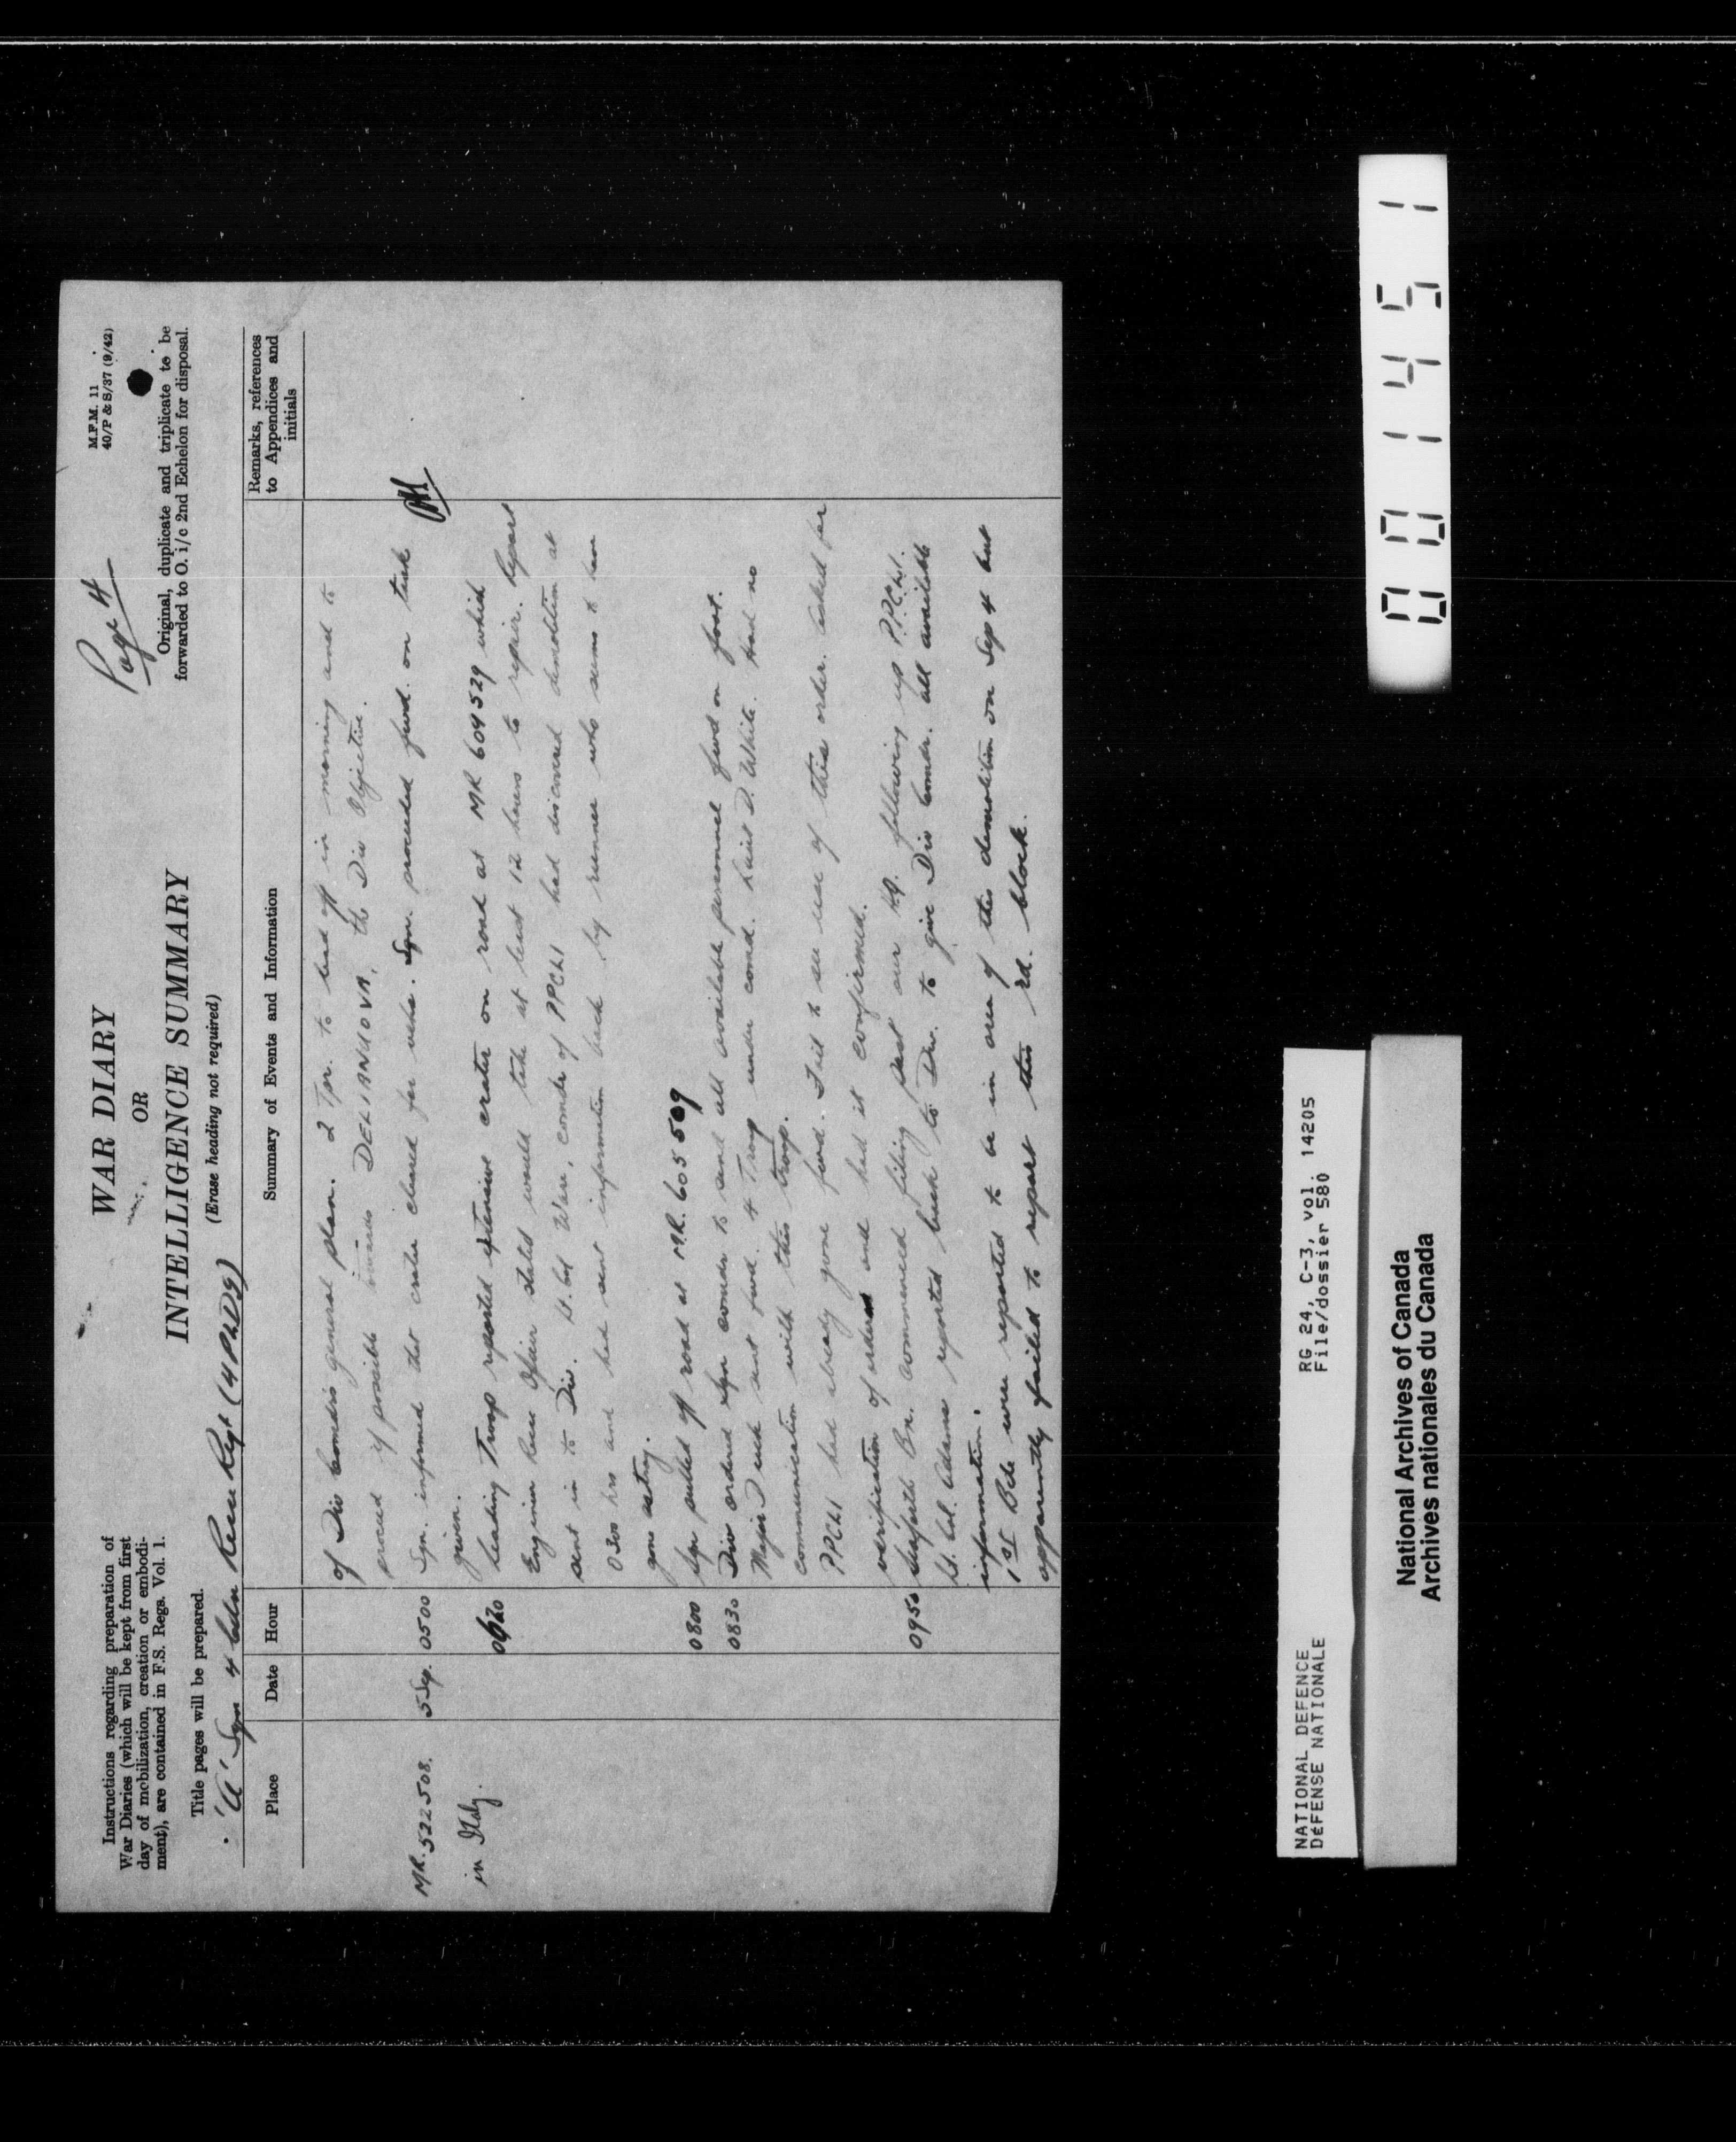 Instructions regarding preparation of
War Diaries (which will be kept from first
day of mobilization, creation or embodi-
ment), are contained in F.S. Regs. Vol. 1.
Title pages will be prepared.
WAR DIARY
OR
INTELLIGENCE SUMMARY
(Erase heading not required)
Page 4
M.F.M. 11
40/P & S/37 (9/42)
Original, duplicate and triplicate to be
forwarded to O. i/c 2nd Echelon for disposal.
'A' Sqn 4 Cdn Recce Regt (4 PLDG)
Place Date Hour Summary of Events and Information Remarks, references
to Appendices and
initials
of Div Comdrs general plan. 2 Tpr. to lead off in morning and to
proceed if possible towards DELIANUOVA, the Div Objective.
MR. 522508. 5 Sep. 0500 Sqn. informed that crater cleared for vehs. Sqn. proceeded fwd. on task
in Italy. given.
0620 Leading Troop reported extensive crater on road at MR 609529 which
Engineer Recce Officer stated would take at least 12 hours to repair. Report
sent in to Div. Lt. Col Ware, comdr of PPCLI had discovered demolition at
0300 hrs and had sent information back by runner who seems to have
gone astray.
0800 Sqn pulled off road at M.R. 605509
0830 Div ordered Sqn comdr to send all available personnel fwd on foot.
Major D sent fwd. 4 Troop under comd. Lieut D. White. Had no
communication with this troop.
PPCLI had already gone fwd. Fail to see use of this order. Asked for
verification of order and had it confirmed.
0950 Seaforth Bn. commenced filing past our HQ. following up P.P.C.L.I.
Lt. Col. Adams reported back to Div. to give Div Comdr. all available
information.
1st Bde were reported to be in area of this demolition on Sep 4 but
apparently failed to report this rd. block.
001451
NATIONAL DEFENCE RG 24, C-3, vol. 14205
DÉFENSE NATIONALE File/dossier 580
National Archives of Canada
Archives nationales du Canada